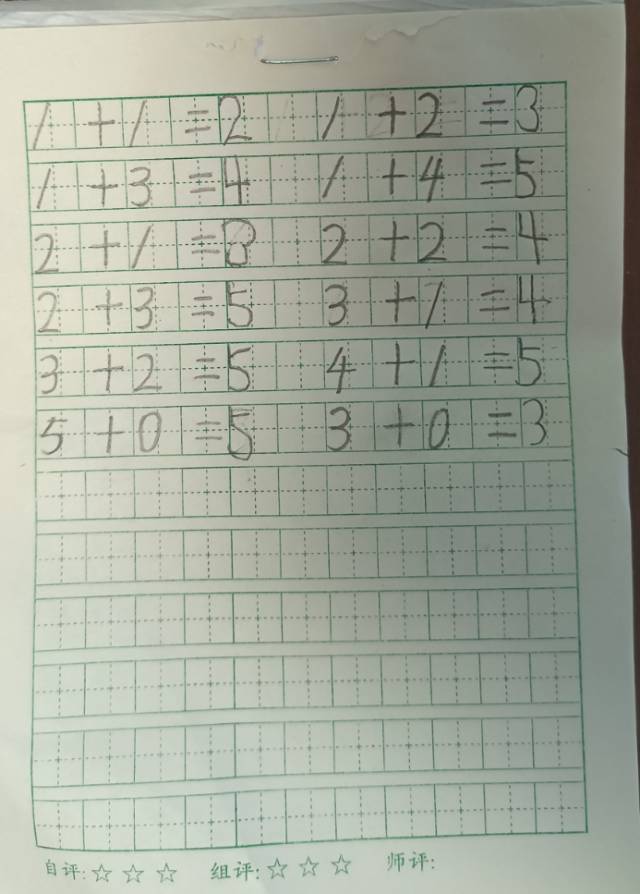 1+1=2 1+2=3
1+3=4 1+4=5
2+1=3 2+2=4
2+3=5 3+1=4
3+2=5 4+1=5
5+0=5 3+0=3
自评:☆☆☆ 组评:☆☆☆ 师评: